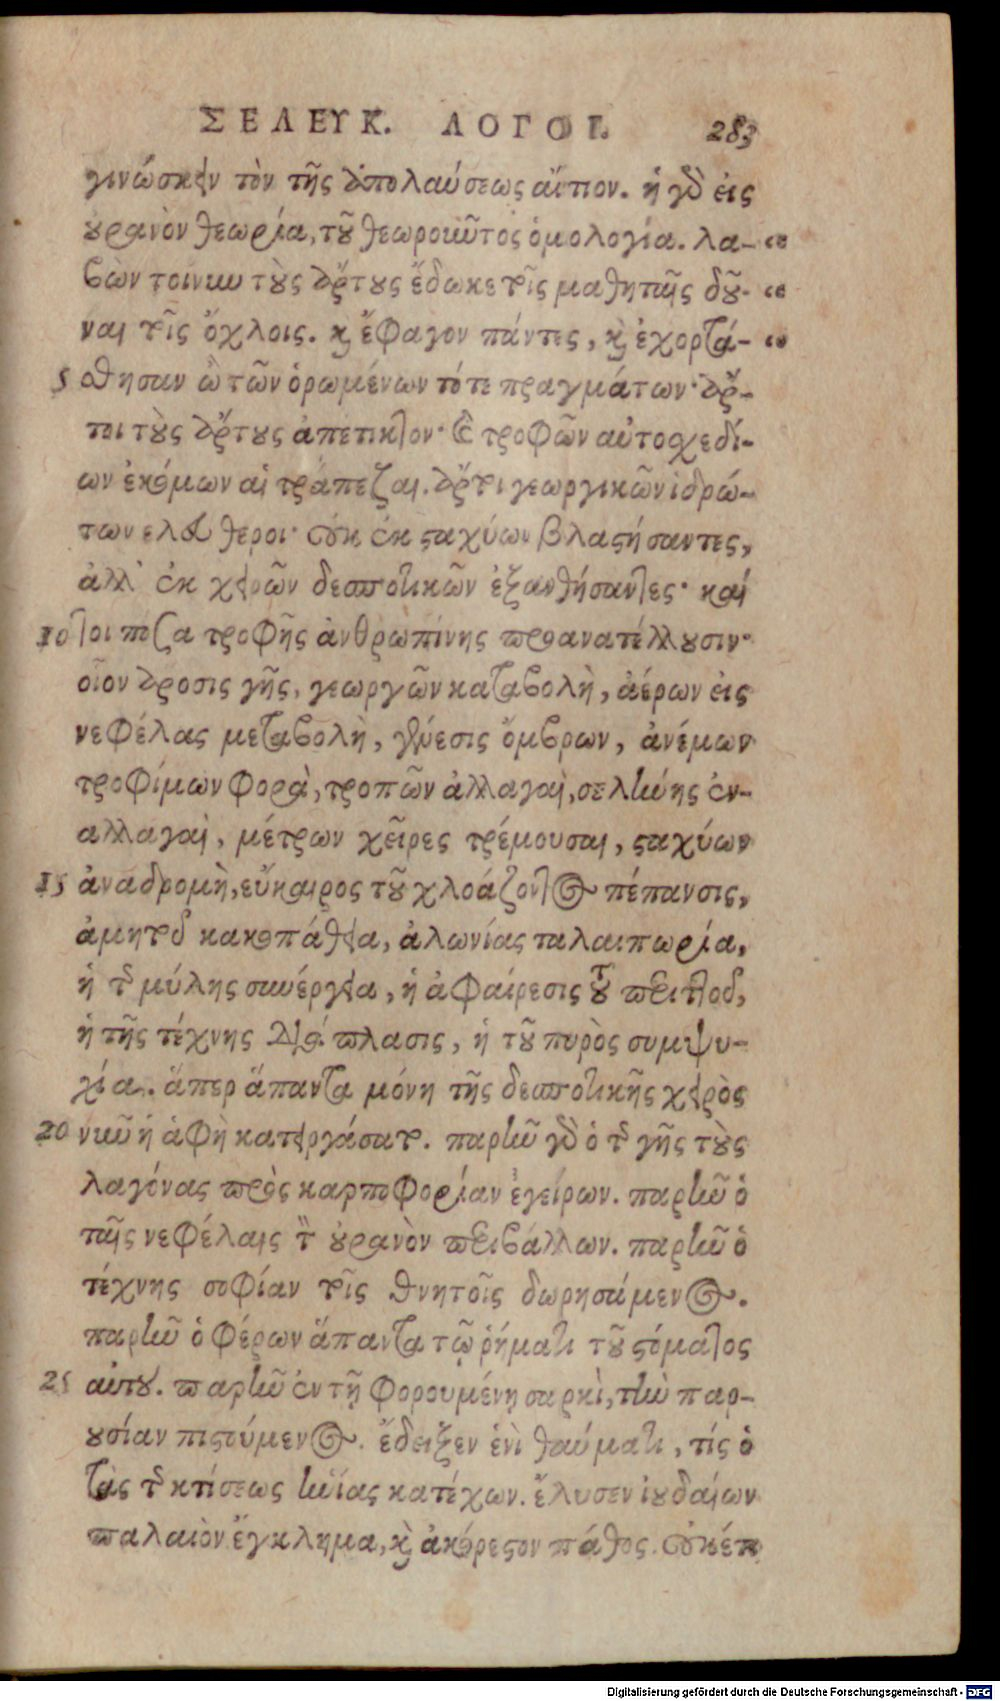 ΣΕΛΕΥΚ. ΛΟΓΟΙ. 283
γινώσκειν τὸν τῆς ἀπολαύσεως αἴτιον. ἡ γὸ εἰς
οὐρανὸν θεωρία, τοῦ θεωροιῦτος ὁμολογία. λα-
βὼν τοίνυν τοὺς ἄρτους ἔδωκε τοῖς μαθηταῖς δοῦ-
ναι τοῖς ὄχλοις. καὶ ἔφαγον πάντες, καὶ ἐχορτά-
5 σθησαν ὢ τῶν ὁρωμένων τότε πραγμάτων· ἄρ-
τοι τοὺς ἄρτους ἀπέτικτον· καὶ τροφῶν αὐτοσχεδί-
ων ἐκόμων αἱ τράπεζαι. ἄρτοι γεωργικῶν ἱδρώ-
των ελεύθεροι· οὐκ ἐκ σαχύων βλαστήσαντες,
ἀλλ' ἐκ χειρῶν δεσποτικῶν ἐξανθήσαντες· καὶ
10 τοι πόσα τροφῆς ἀνθρωπίνης προανατέλλουσιν·
οἷον ἄροσις γῆς, γεωργῶν καταβολὴ, ἀέρων εἰς
νεφέλας μεταβολὴ, γένεσις ὄμβρων, ἀνέμων
τροφίμων φορὰ, τροπῶν ἀλλαγαὶ, σελήνης ἐν-
αλλαγαὶ, μέτρων χεῖρες τρέμουσαι, σταχύων
15 ἀναδρομὴ, εὔκαιρος τοῦ χλοάζοντος πέπανσις,
ἀμητοῦ κακοπάθεια, ἁλωνίας ταλαιπωρία,
ἡ τῆς μύλης συνέργεια, ἡ ἀφαίρεσις τοῦ περιττοῦ,
ἡ τῆς τέχνης διάπλασις, ἡ τοῦ πυρὸς συμψυ-
χία. ἅπερ ἅπαντα μόνη τῆς δεσποτικῆς χειρὸς
20 νιῦ ἡ ἁφὴ κατειργάσατο. παρῆν γὸ ὁ τῆς γῆς τοὺς
λαγόνας πρὸς καρποφορίαν ἐγείρων. παρῆν ὁ
ταῖς νεφέλαις τὸν οὐρανὸν περιβάλλων. παρῆν ὁ
τέχνης σοφίαν τοῖς θνητοῖς δωρησάμενος.
παρῆν ὁ φέρων ἅπαντα τῷ ῥήματι τοῦ στόματος
25 αὐτοῦ. παρῆν ἐν τῇ φορουμένῃ σαρκὶ, τὴν παρ-
ουσίαν πιστούμενος. ἔδειξεν ἑνὶ θαύματι, τίς ὁ
τὰς τῆς κτίσεως ἡνίας κατέχων. ἔλυσεν ἰουδαίων
παλαιὸν ἔγκλημα, καὶ ἀκόρεστον πάθος. οὐκέτι